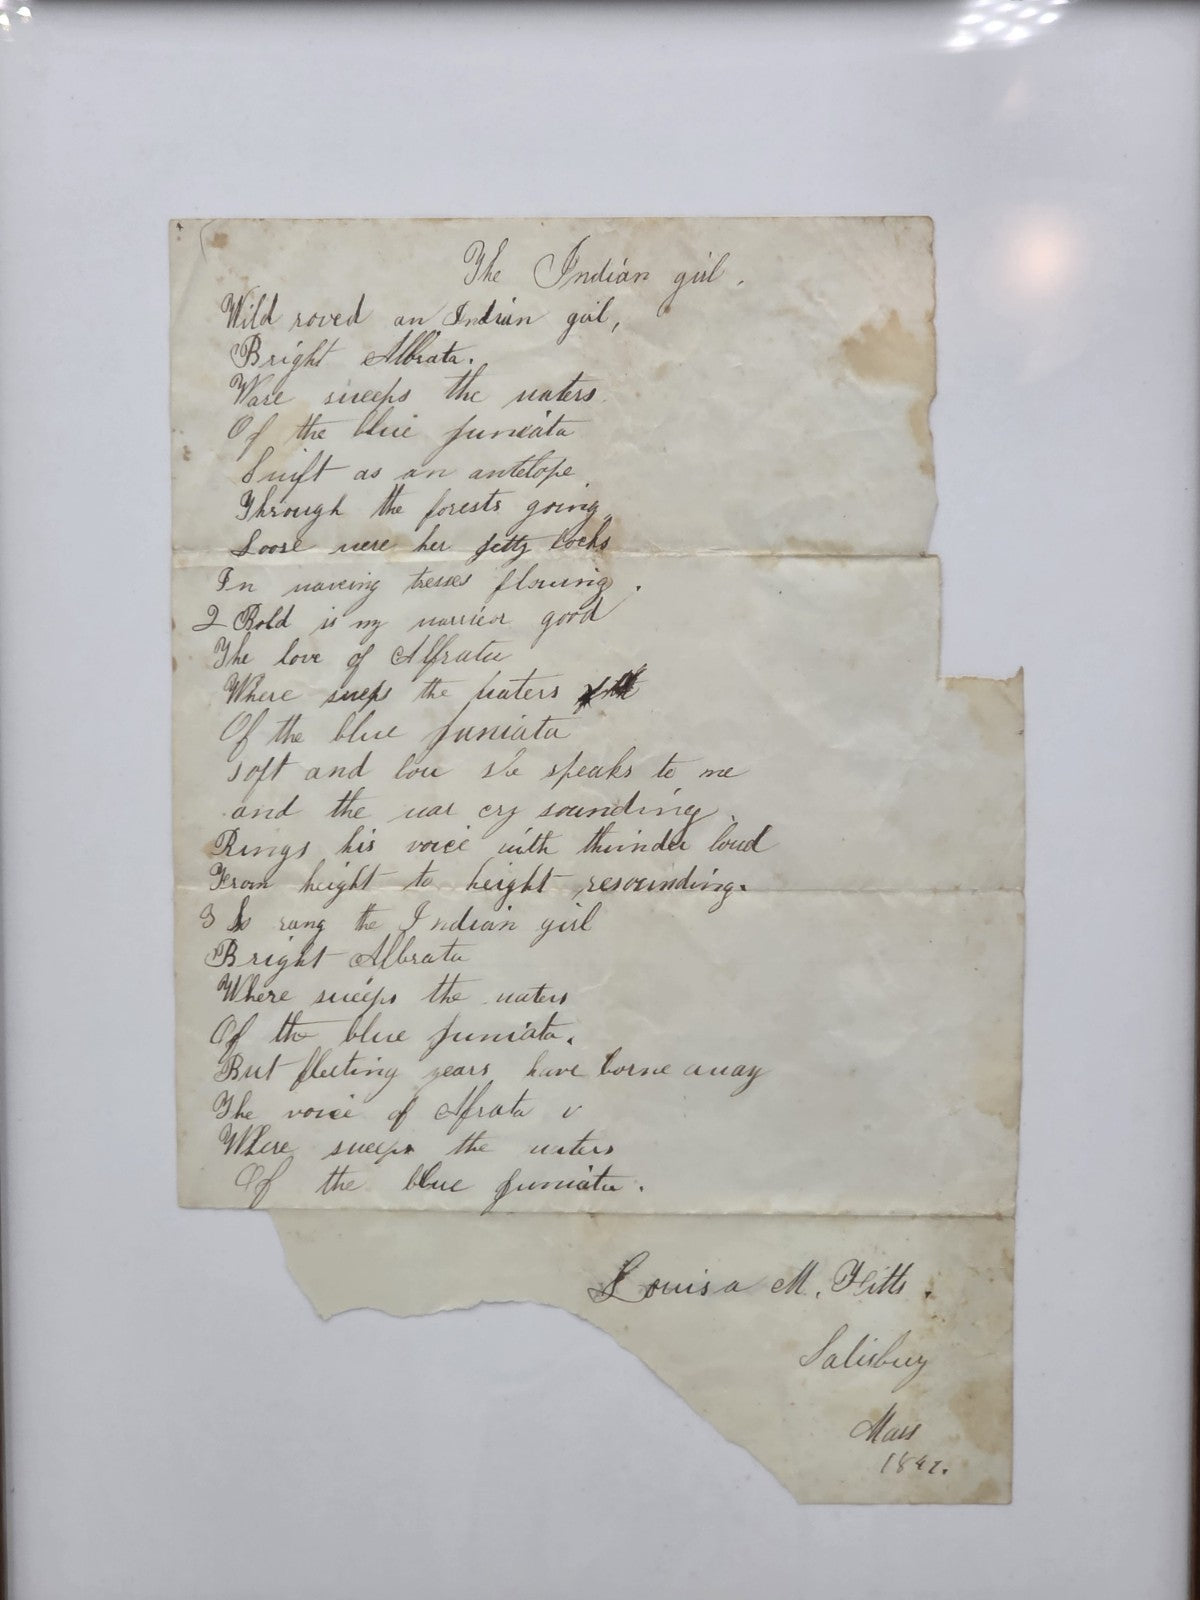 The Indian girl.
Wild roved an Indian girl,
Bright Albrata.
Ware sweeps the waters
Of the blue Juniata
Swift as an antelope
Through the forests going
Loose were her jetty locks
In waveing tresses flowing.
2 Bold is my warrior good
The love of Alfrata
Where sweps the waters
Of the blue Juniata
soft and low she speaks to me
and the war cry sounding
Rings his voice with thunder loud
From height to height resounding.
3 So sang the Indian girl
Bright Albrata
Where sweeps the waters
Of the blue Juniata.
But fleeting years have borne away
The voice of Afrata
Where sweeps the waters
Of the blue Juniata.
Louisa M. Fitts.
Salisbury
Mass